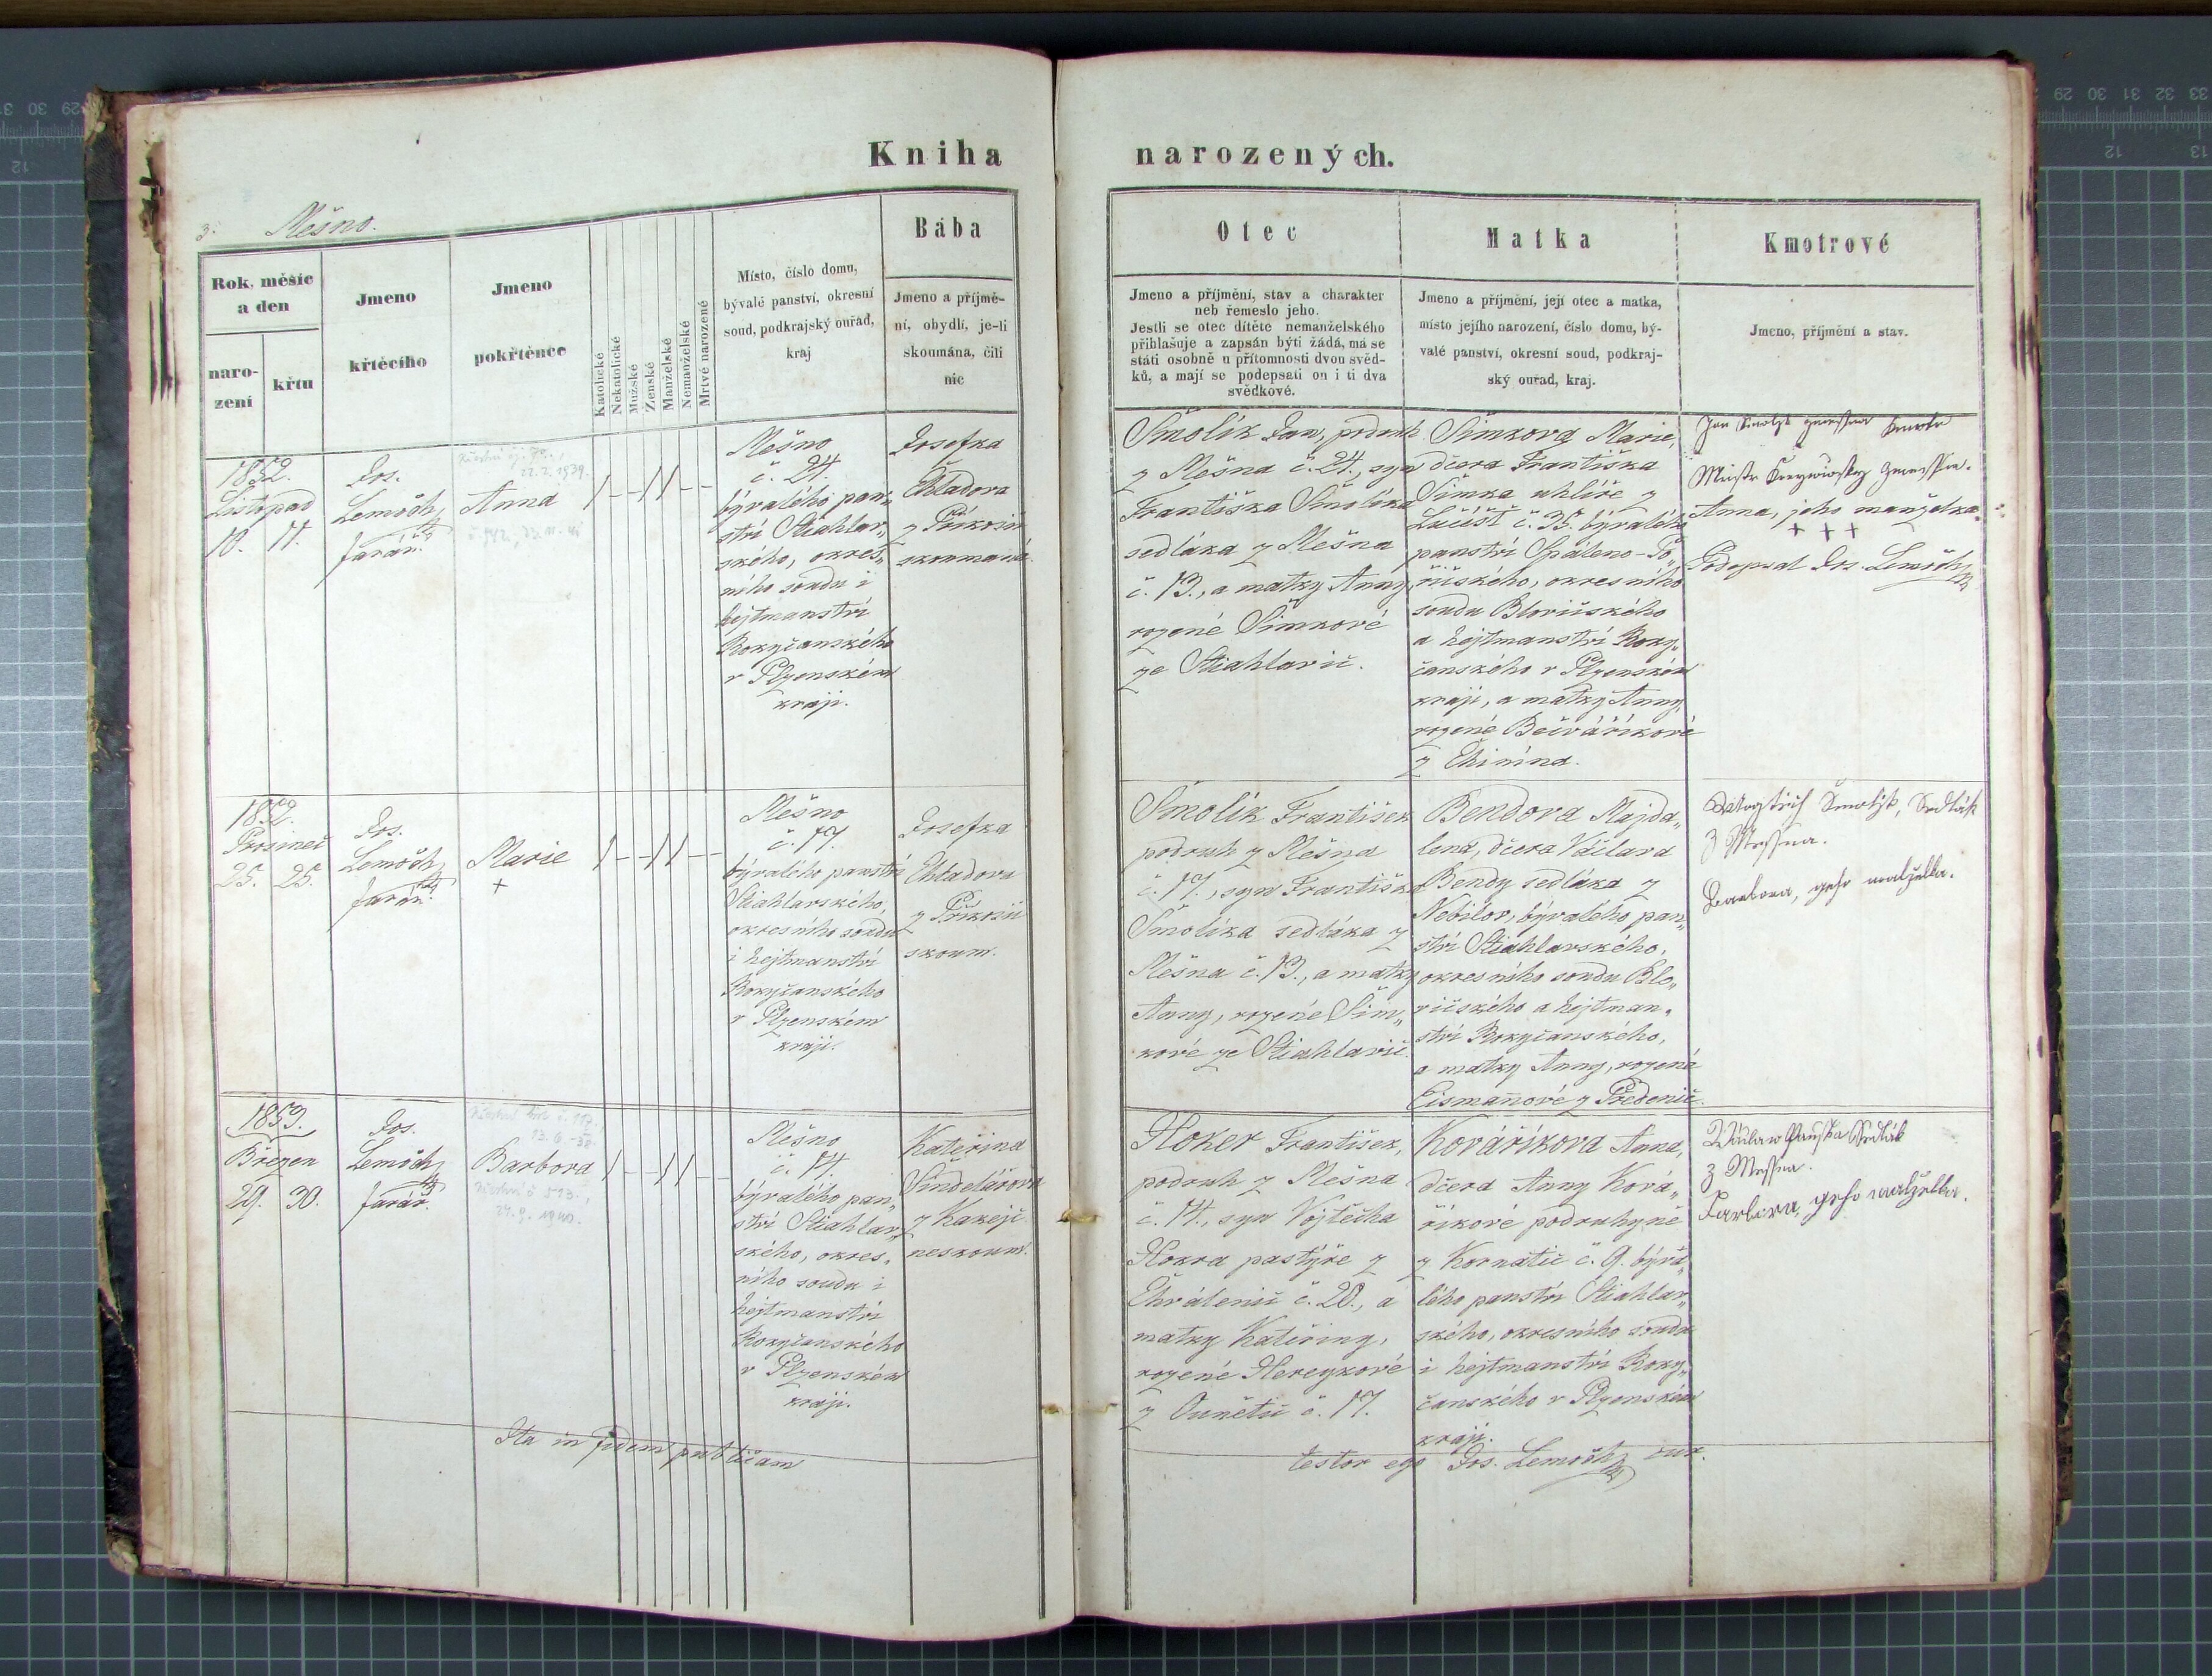 Kniha narozených.
3.
Mešno.
Rok, měsíc
a den
naro-
zení
křtu
Jmeno
křtěcího
Jmeno
pokřtěnce
Katolické
Nekatolické
Mužské
Ženské
Manželské
Nemanželské
Mrtvé narozené
Místo, číslo domu,
bývalé panství, okresní
soud, podkrajský ouřad,
kraj
Bába
Jmeno a příjmě-
ní, obydlí, je-li
skoumána, čili
nic
Otec
Jmeno a příjmění, stav a charakter
neb řemeslo jeho.
Jestli se otec dítěte nemanželského
přiblašuje a zapsán býti žádá, má se
státi osobně u přítomnosti dvou svěd-
ků, a mají se podepsati on i ti dva
svědkové.
Matka
Jmeno a příjmění, její otec a matka,
místo jejího narození, číslo domu, bý-
valé panství, okresní soud, podkraj-
ský ouřad, kraj.
Kmotrové
Jmeno, příjmění a stav.
1852.
Listopad
10. 11.
Jos.
Lemoch
farář.
Anna
Mešno
č. 24.
bývalého pan„
ství Štiahlav„
ského, okres„
ního soudu i
hejtmanství
Rokyčanského
v Plzenském
kraji.
Josefka
Chladova
z Příkosic
skoumaná.
Šmolík Jan, podruh
z Mešna č. 24., syn
Františka Šmolíka
sedláka z Mešna
č. 13., a matky Anny
rozené Šimkové
ze Štiahlavic.
Šimkova Marie,
dčera Františka
Šimka uhlíře z
Lučišť č. 35. bývalého
panství Spáleno-Po„
říčského, okresního
soudu Blovičského
a hejtmanství Roky„
čanského v Plzenském
kraji, a matky Anny,
rozené Bečváříkové
z Chinína.
Anna, jeho manželka.
+ + +
Podepsal Jos. Lemoch
1852.
Prosinec
25. 25.
Jos.
Lemoch
farář.
Marie
+
Mešno
č. 17.
bývalého panství
Štiahlavského,
okresního soudu
i hejtmanství
Rokyčanského
v Plzenském
kraji.
Josefka
Chladova
z Příkosic
skoum.
Šmolík František
podruh z Mešna
č. 17., syn Františka
Šmolíka sedláka z
Mešna č. 13., a matky
Anny, rozené Šim„
kové ze Štiahlavic.
Bendova Majda„
lena, dčera Václava
Bendy sedláka z
Nebílov, bývalého pan„
ství Štiahlavského,
okresního soudu Blo„
vičského a hejtman„
ství Rokyčanského,
a matky Anny, rozené
Cismanové z Předenic.
Šmolík, Sedlák
z Messna.
Barbora, geho malzelka.
1853.
Březen
29. 30.
Jos.
Lemoch
farář.
Barbora
Mešno
č. 14.
bývalého pan„
ství Štiahlav„
ského, okres„
ního soudu i
hejtmanství
Rokyčanského
v Plzenském
kraji.
Kateřina
Šindelářova
z Kakejc
neskoum.
Hoker František,
podruh z Mešna
č. 14., syn Vojtěcha
Hokra pastýře z
Chválenic č. 20., a
matky Kateřiny,
rozené Herejkové
z Ounětic č. 17.
Kováříkova Anna,
dčera Anny Ková„
říkové podruhyně
z Kornatic č. 9. býva„
lého panství Štiahlav„
ského, okresního soudu
i hejtmanství Roky„
čanského v Plzenském
kraji.
Sedlák
z Messna.
Barbora, geho malzelka.
Ita in fidem publicam
testor ego Jos. Lemoch cur.